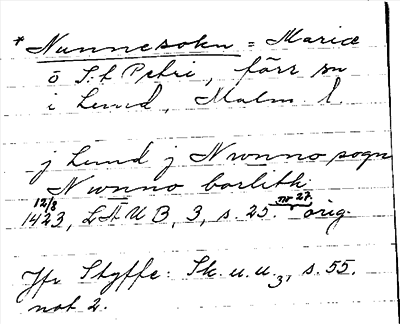 * Nunnesokn = Mariæ
o S:t Petri, förr sn
i Lund, Malm. l.
j Lund j Nwnno sogn
Nwnno borlith
12/8 nr 27.
1423, LÄUB, 3, s. 25. orig.
Jfr Styffe: Sk. u. u. 3, s. 55.
not 2.